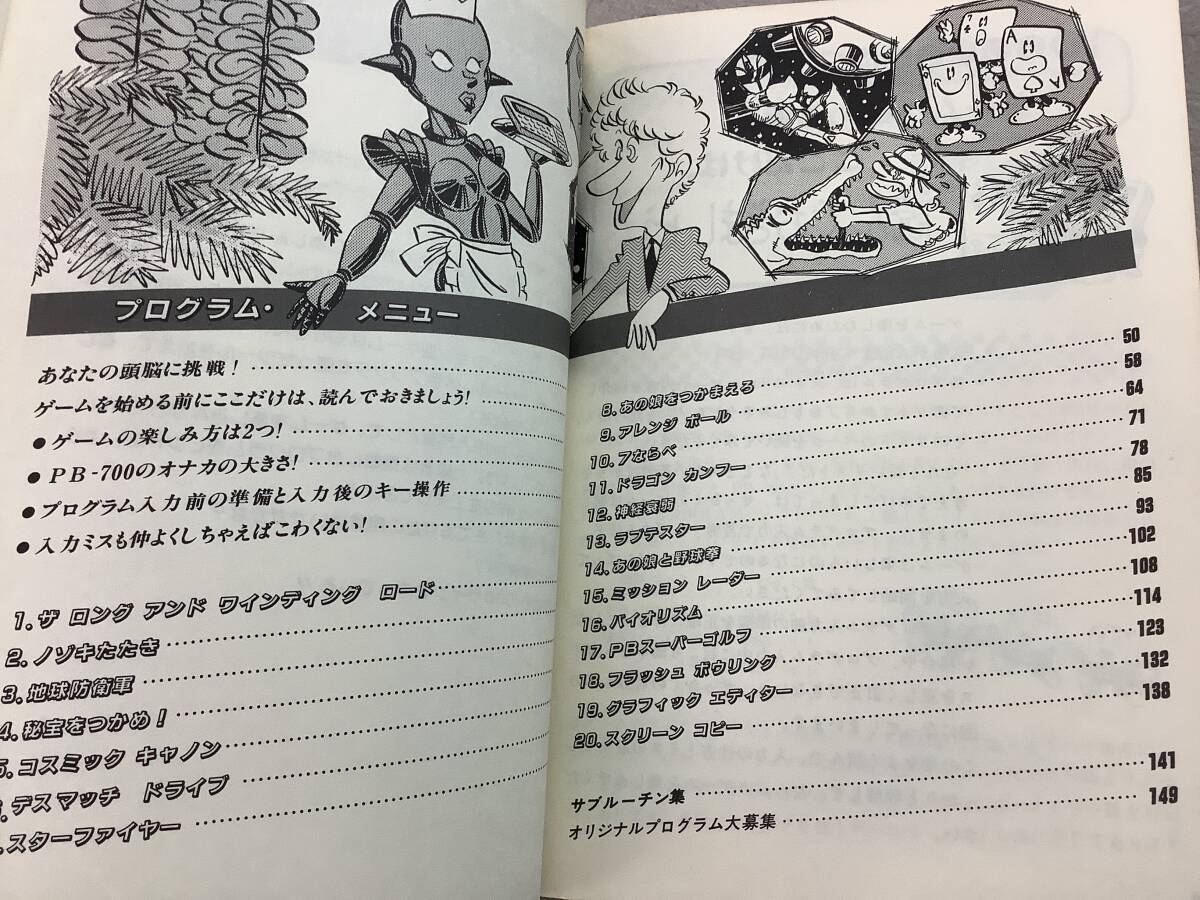 プログラム・メニュー
あなたの頭脳に挑戦！
ゲームを始める前にここだけは、読んでおきましょう！
●ゲームの楽しみ方は2つ！
●PB-700のオナカの大きさ！
●プログラム入力前の準備と入力後のキー操作
●入力ミスも仲よくしちゃえばこわくない！
1.ザ ロング アンド ワインディング ロード
2.ノゾキたたき
3.地球防衛軍
4.秘宝をつかめ！
5.コスミック キャノン
デスマッチ ドライブ
スターファイヤー
8.あの娘をつかまえろ 50
9.アレンジ ボール 58
10.7ならべ 64
11.ドラゴン カンフー 71
12.神経衰弱 78
13.ラブテスター 85
14.あの娘と野球拳 93
15.ミッション レーダー 102
16.バイオリズム 108
17.PBスーパーゴルフ 114
18.フラッシュ ボウリング 123
19.グラフィック エディター 132
20.スクリーン コピー 138
サブルーチン集 141
オリジナルプログラム大募集 149